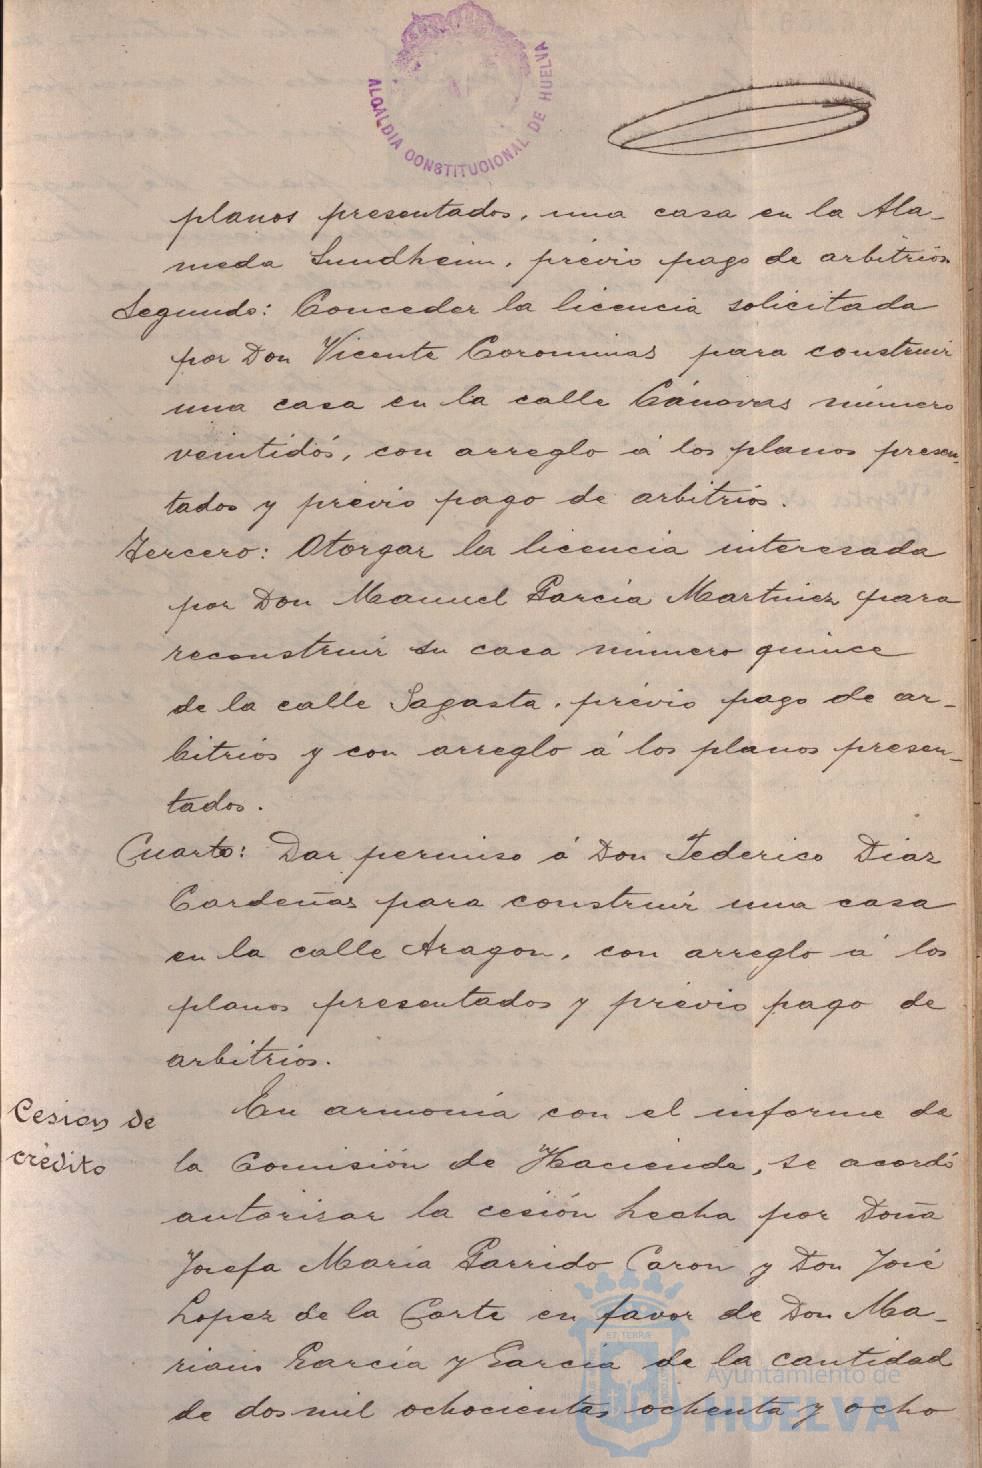 ALCALDIA CONSTITUCIONAL DE HUELVA
planos presentados, una casa en la Ala-
meda Sundheim, prévio pago de arbitrios
Segundo: Conceder la licencia solicitada
por Don Vicente Corominas para construir
una casa en la calle Cánovas número
veintidós, con arreglo á los planos presen-
tados y prévio pago de arbitrios.
Tercero: Otorgar la licencia interesada
por Don Manuel García Martinez para
reconstruir su casa número quince
de la calle Sagasta, prévio pago de ar-
bitrios y con arreglo á los planos presen-
tados.
Cuarto: Dar permiso á Don Federico Diaz
Cardeñas para construir una casa
en la calle Aragon, con arreglo á los
planos presentados y prévio pago de
arbitrios.
Cesion de
crédito
En armonía con el informe de
la Comisión de Hacienda, se acordó
autorisar la cesión hecha por Doña
Josefa María Garrido Caron y Don José
Lopez de la Corte en favor de Don Ma-
riano García y García de la cantidad
de dos mil ochocientas ochenta y ocho
ET TERRÆ
Ayuntamiento de
HUELVA